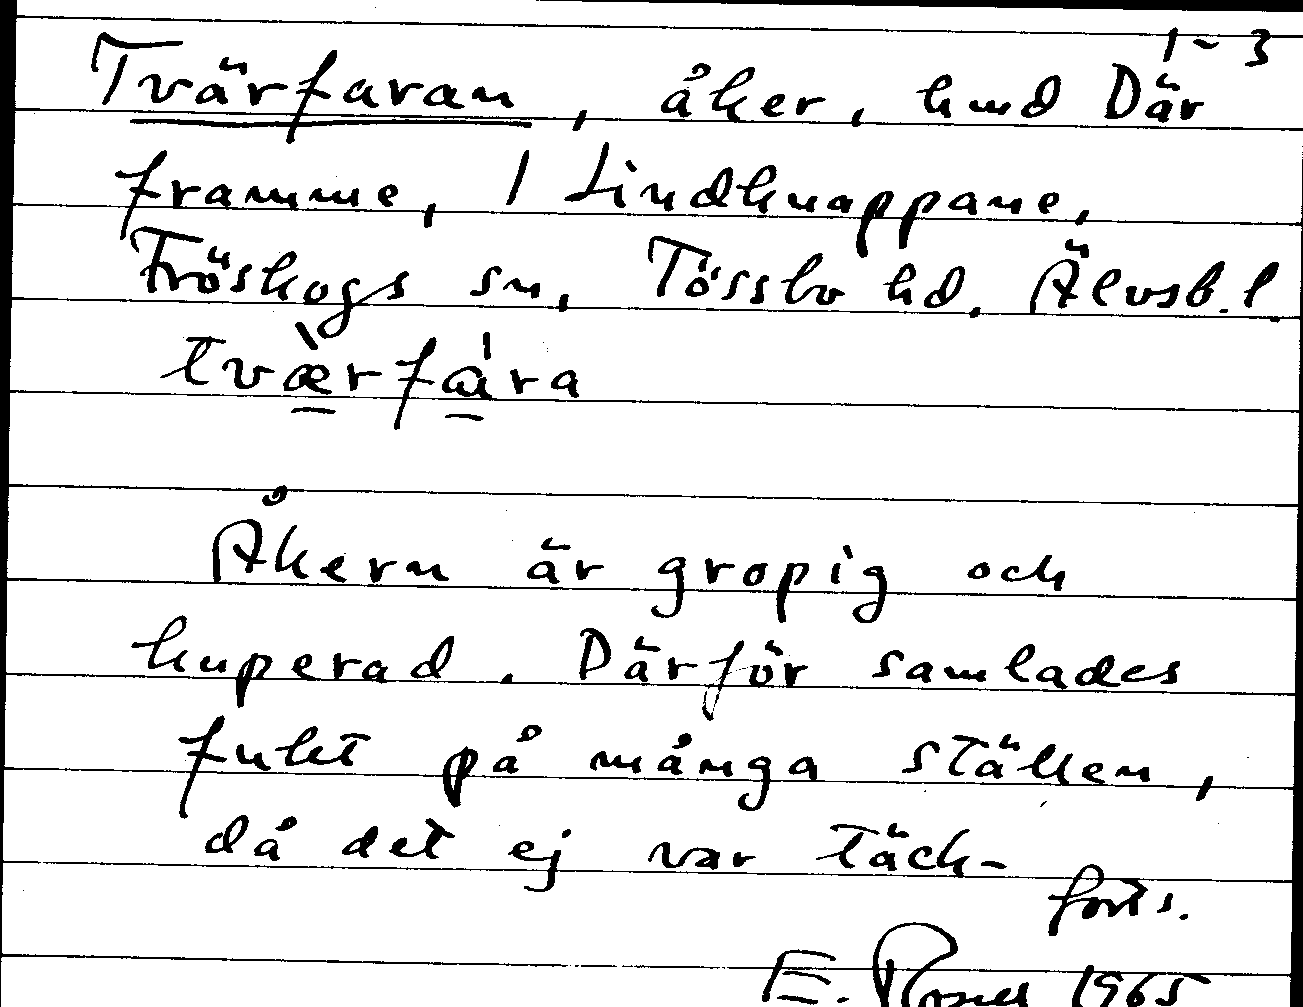 1-3
Tvärfaran, åker, hmd Där
framme, 1 Lindknappane,
Fröskogs sn, Tössbo hd. Älvsb. l.
tvæ̀rfa̍ra
Åkern är gropig och
kuperad. Därför samlades
fukt på många ställen,
då det ej var täck-
forts.
E. 1965